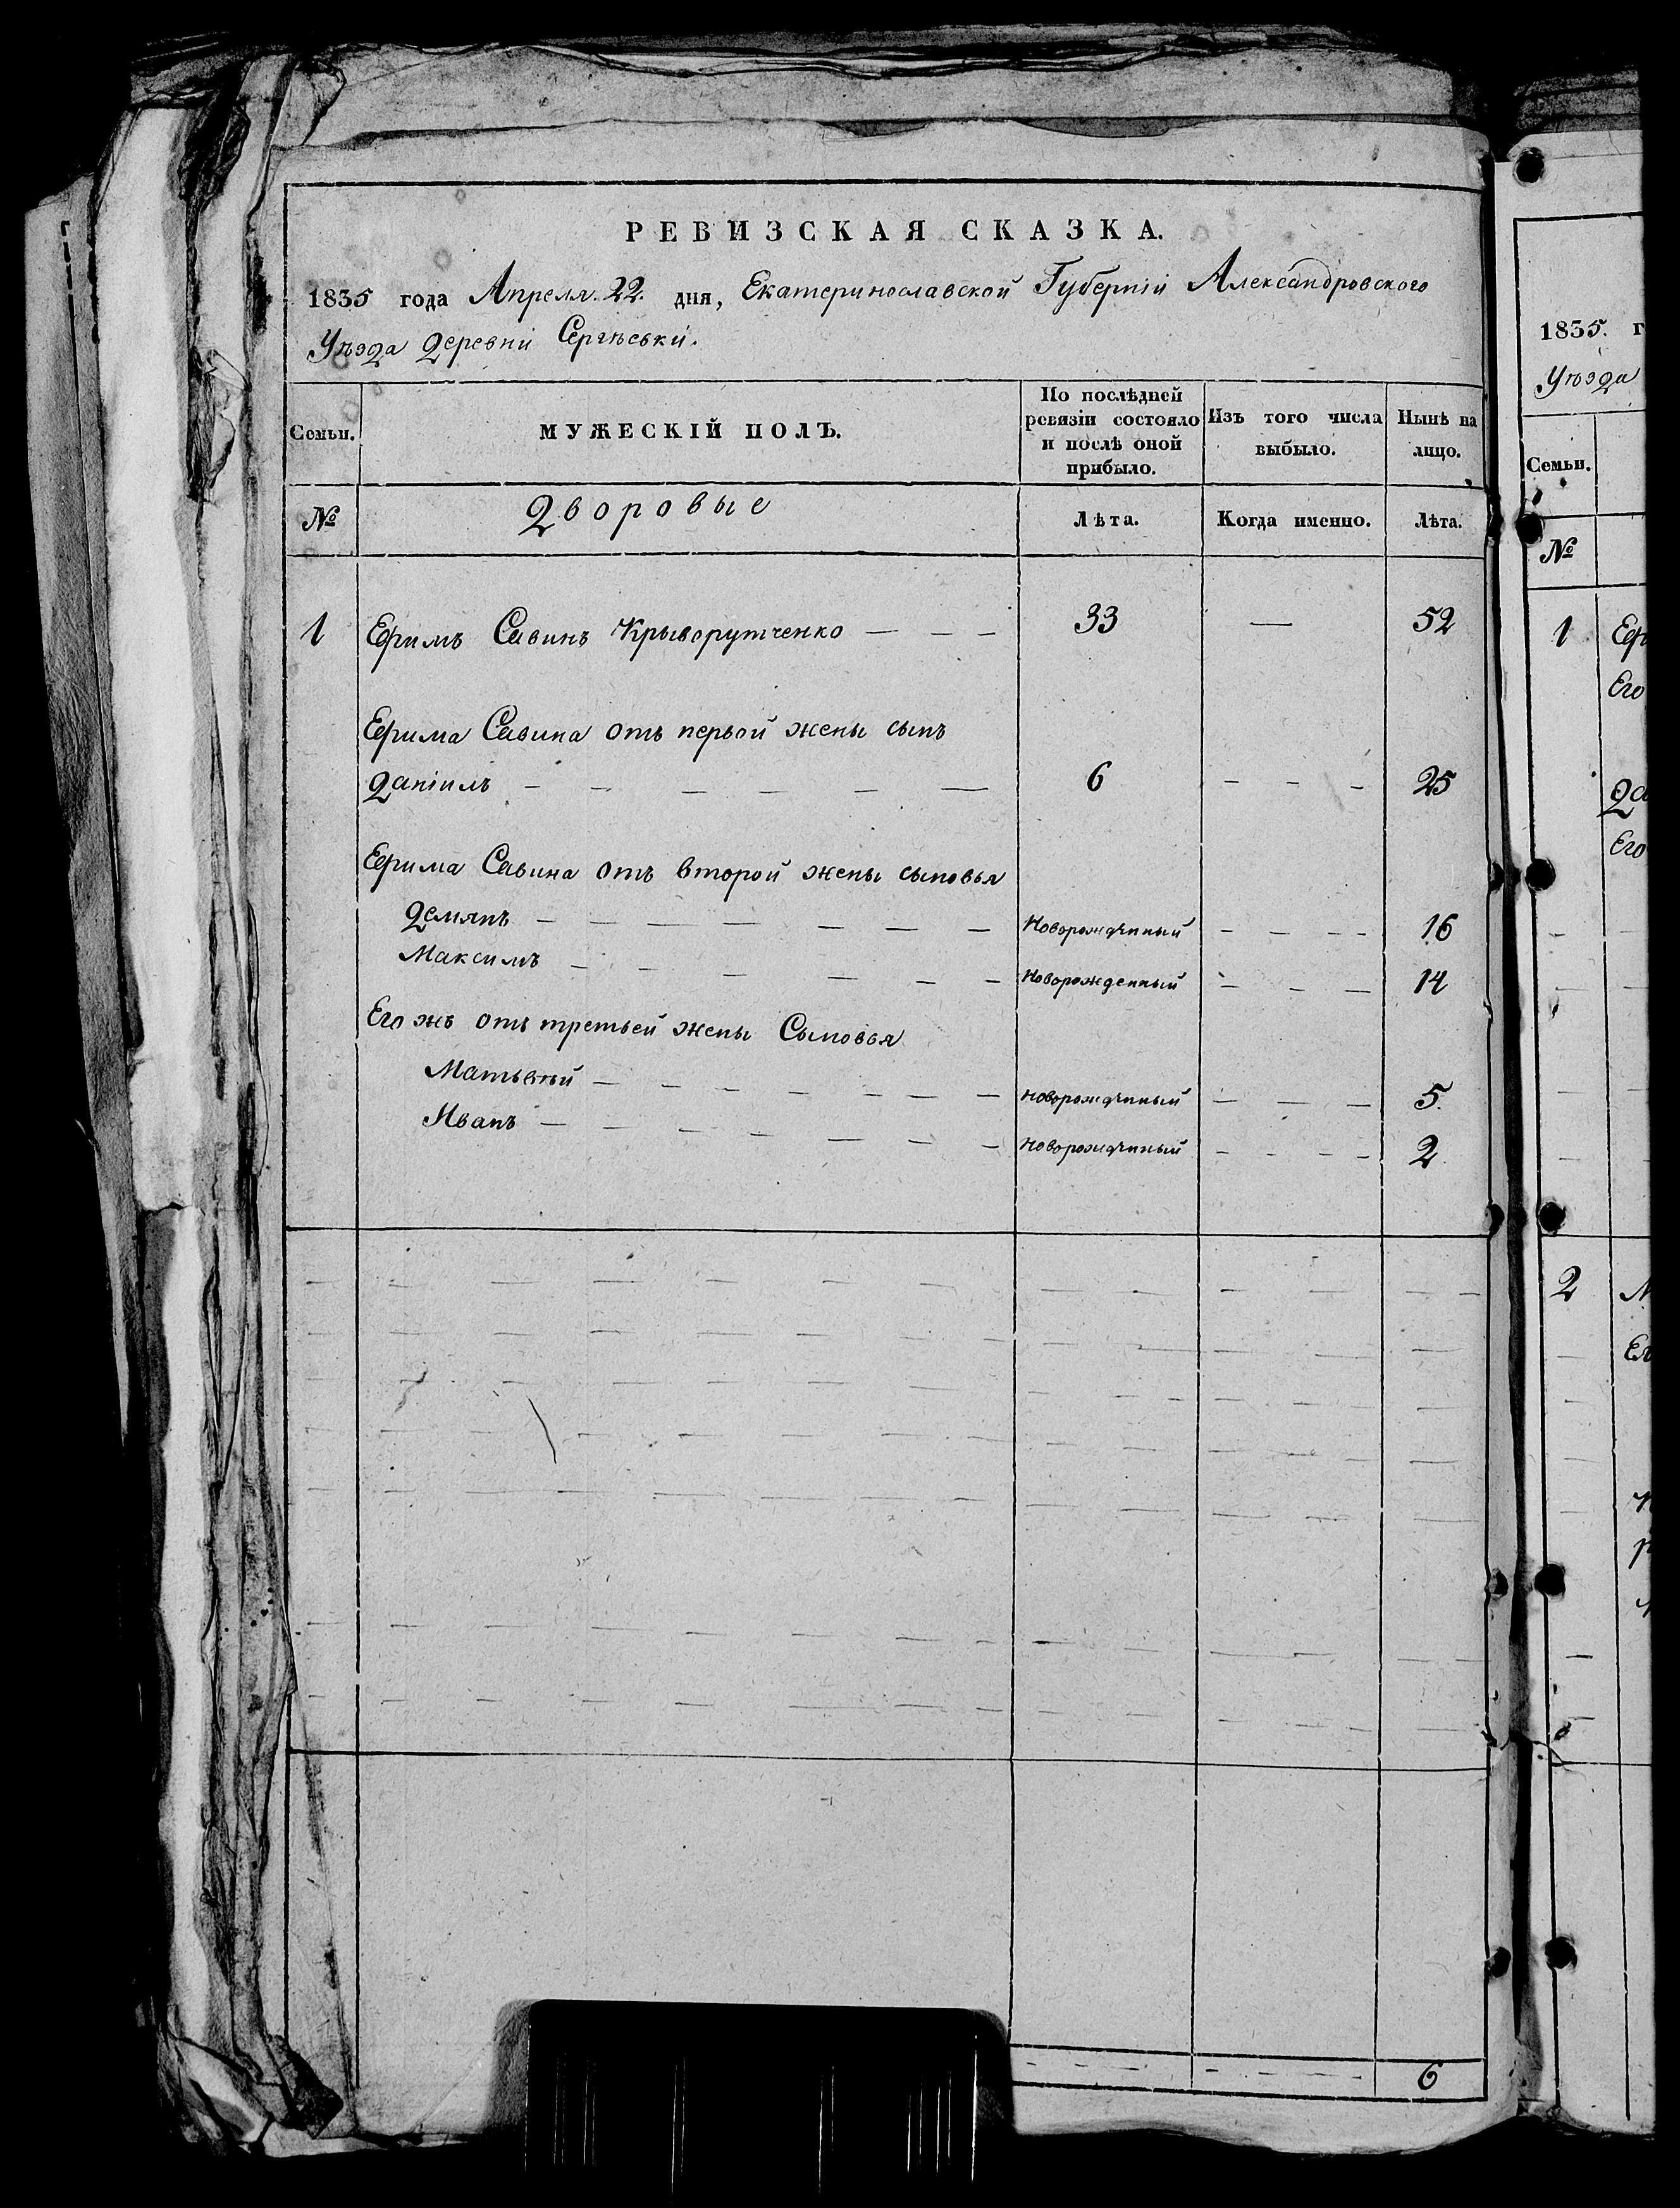 РЕВИЗСКАЯ СКАЗКА.
1835 года Апреля 22. дня, Екатеринославской Губернiи Александровского
Уѣзда Деревни Сергѣевки.
Семьи.
МУЖЕСКІЙ ПОЛЪ.
По послѣдней ревизіи состояло и послѣ оной прибыло.
Изъ того числа выбыло.
Нынѣ на лицо.
№
Дворовые
Лѣта.
Когда именно.
Лѣта.
1 Ефимъ Савинъ Крыворутченко — — — 33 — 52
Ефима Савина отъ первой жены сынъ
Данiилъ — — — — — — 6 — — — 25
Ефима Савина отъ второй жены сыновья
Демянъ — — — — — — — Новорожденный — — — — 16
Максимъ — — — — — — Новорожденный — — — 14
Его жъ отъ третьей жены Сыновья
Матьвѣй — — — — — — — новорожденный — — — 5.
Иванъ — — — — — — — Новорожденный — — — — 2
6
1835. г
Уѣзда
Семьи.
№
1 Еф
Его
Да
Его
2